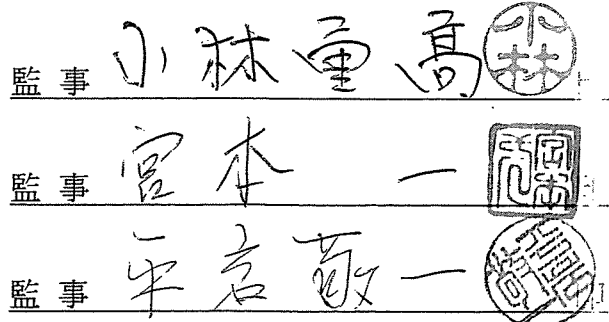 監事 小林重高
監事 宮本 一
監事 平岩敬一